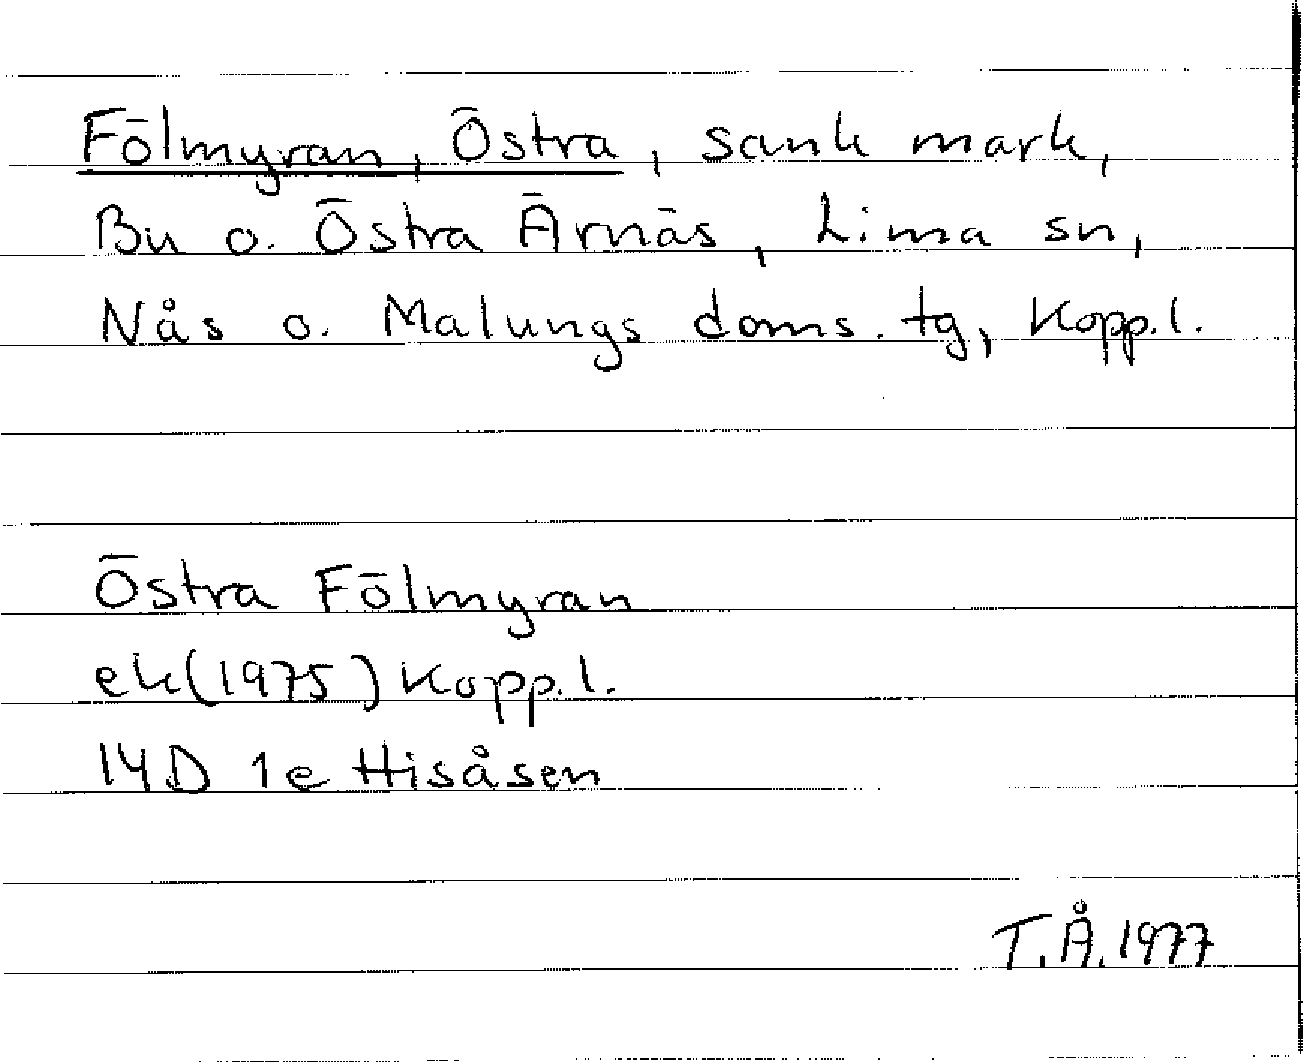 Fölmyran, Östra, sank mark,
Bu o. Östra Ärnäs, Lima sn,
Nås o. Malungs doms. tg, Kopp.l.
Östra Fölmyran
ek(1975) Kopp.l.
14D 1e Hisåsen
T.Å.1977